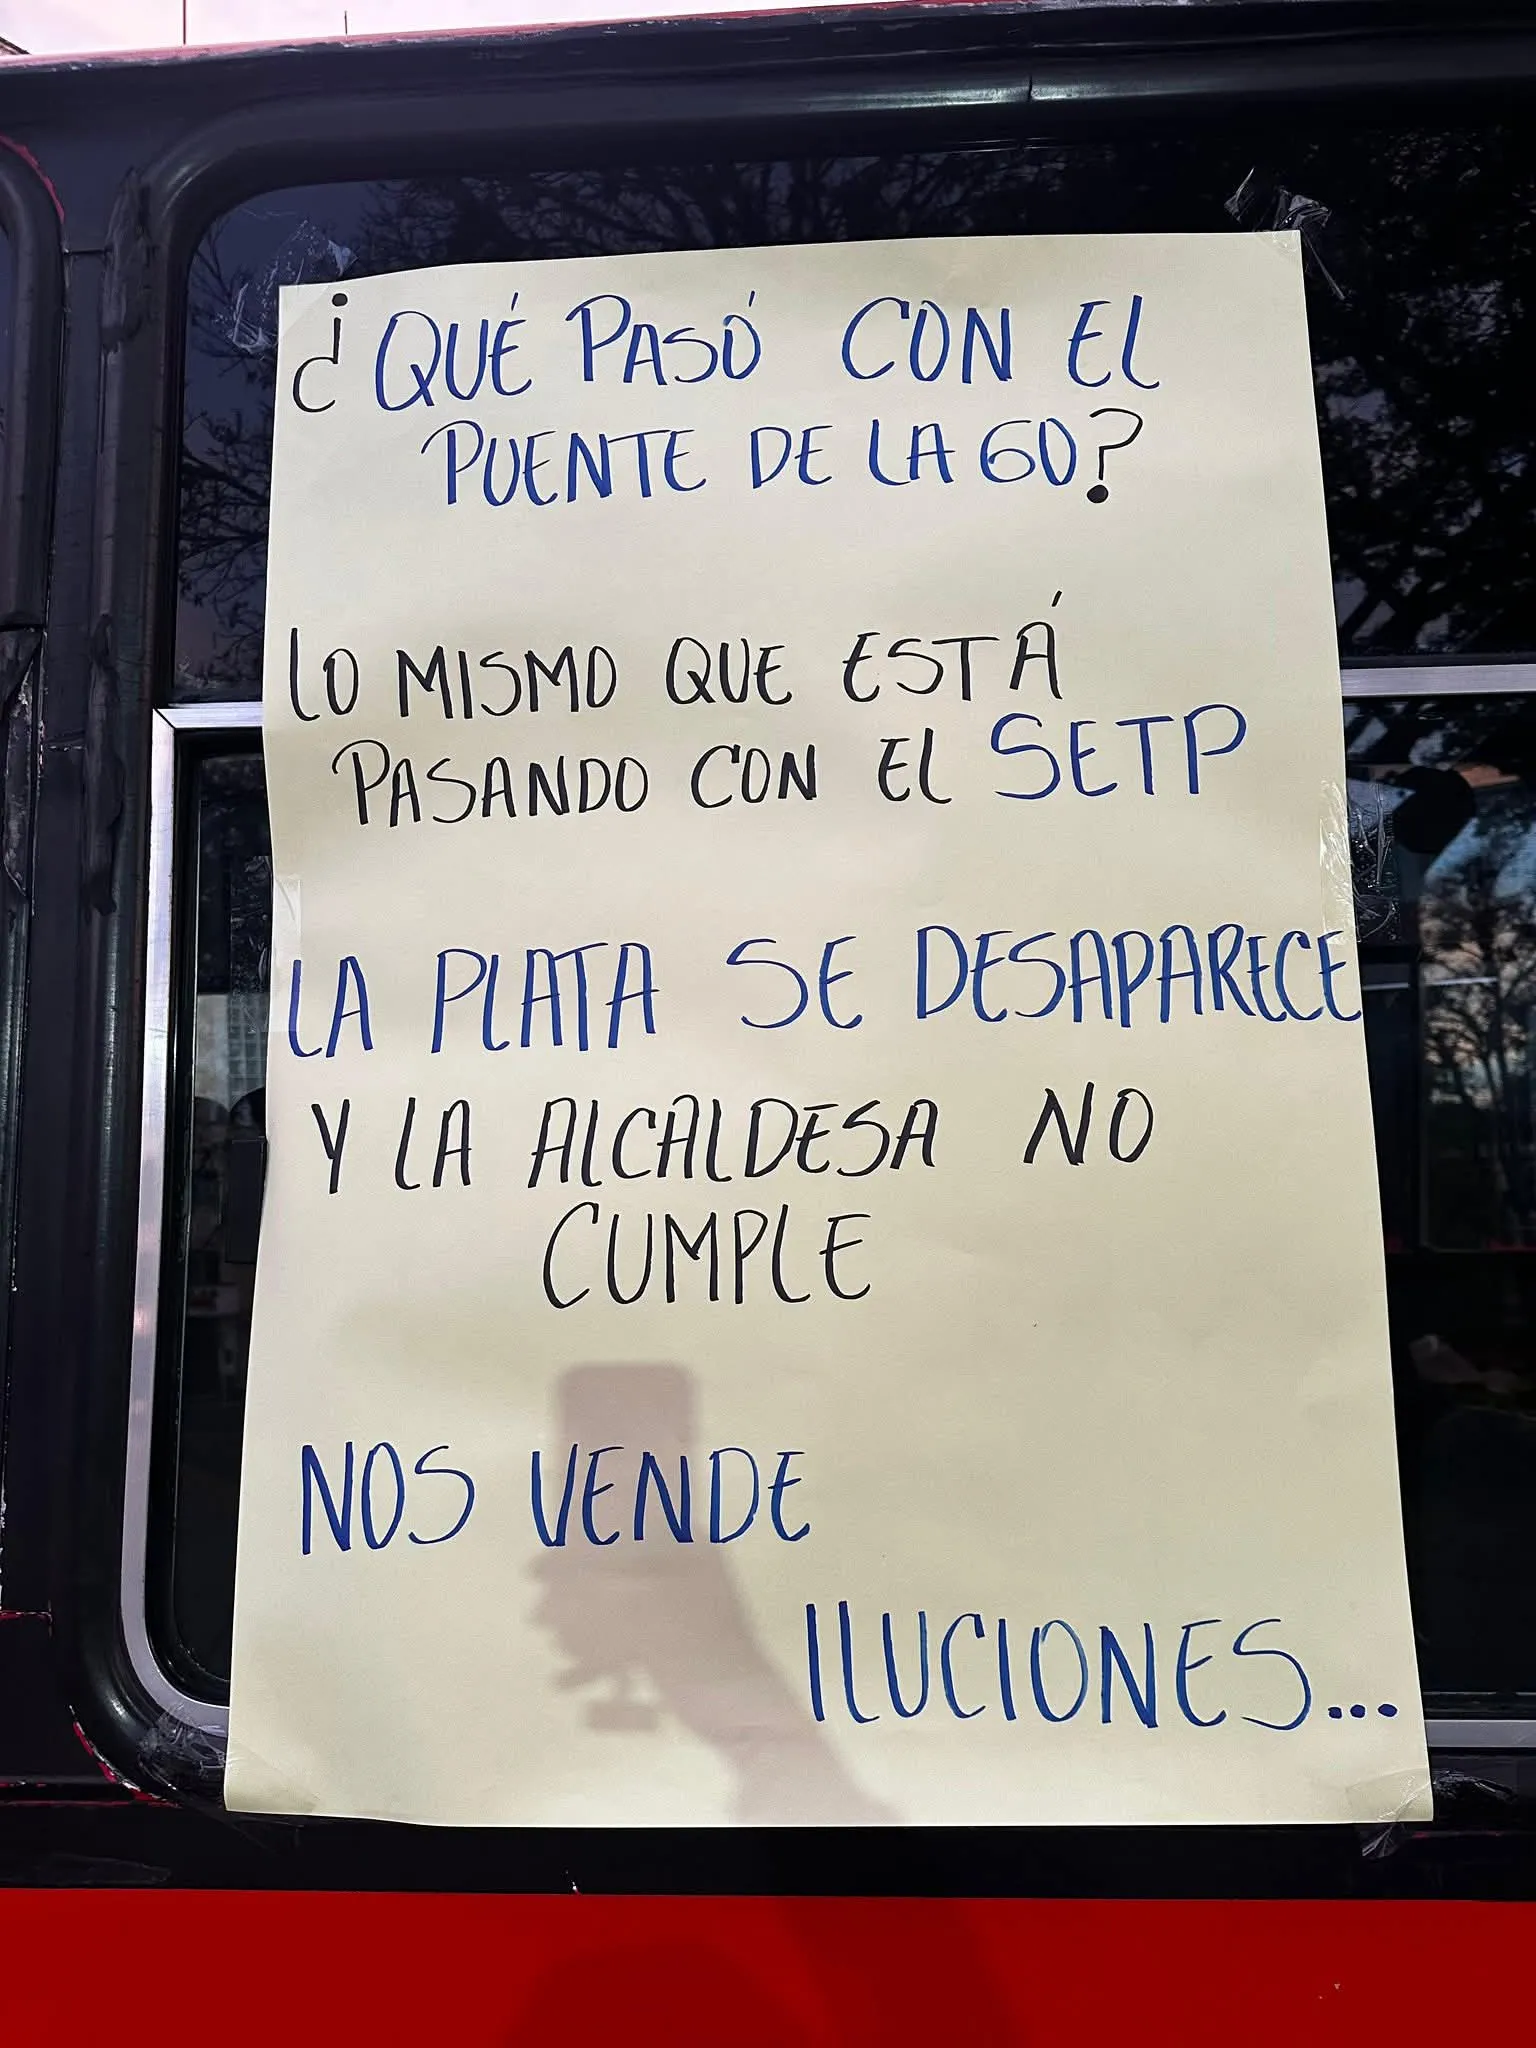 ¿QUÉ PASÓ CON EL
PUENTE DE LA 60?
LO MISMO QUE ESTÁ
PASANDO CON EL SETP
LA PLATA SE DESAPARECE
Y LA ALCALDESA NO
CUMPLE
NOS VENDE
ILUCIONES...